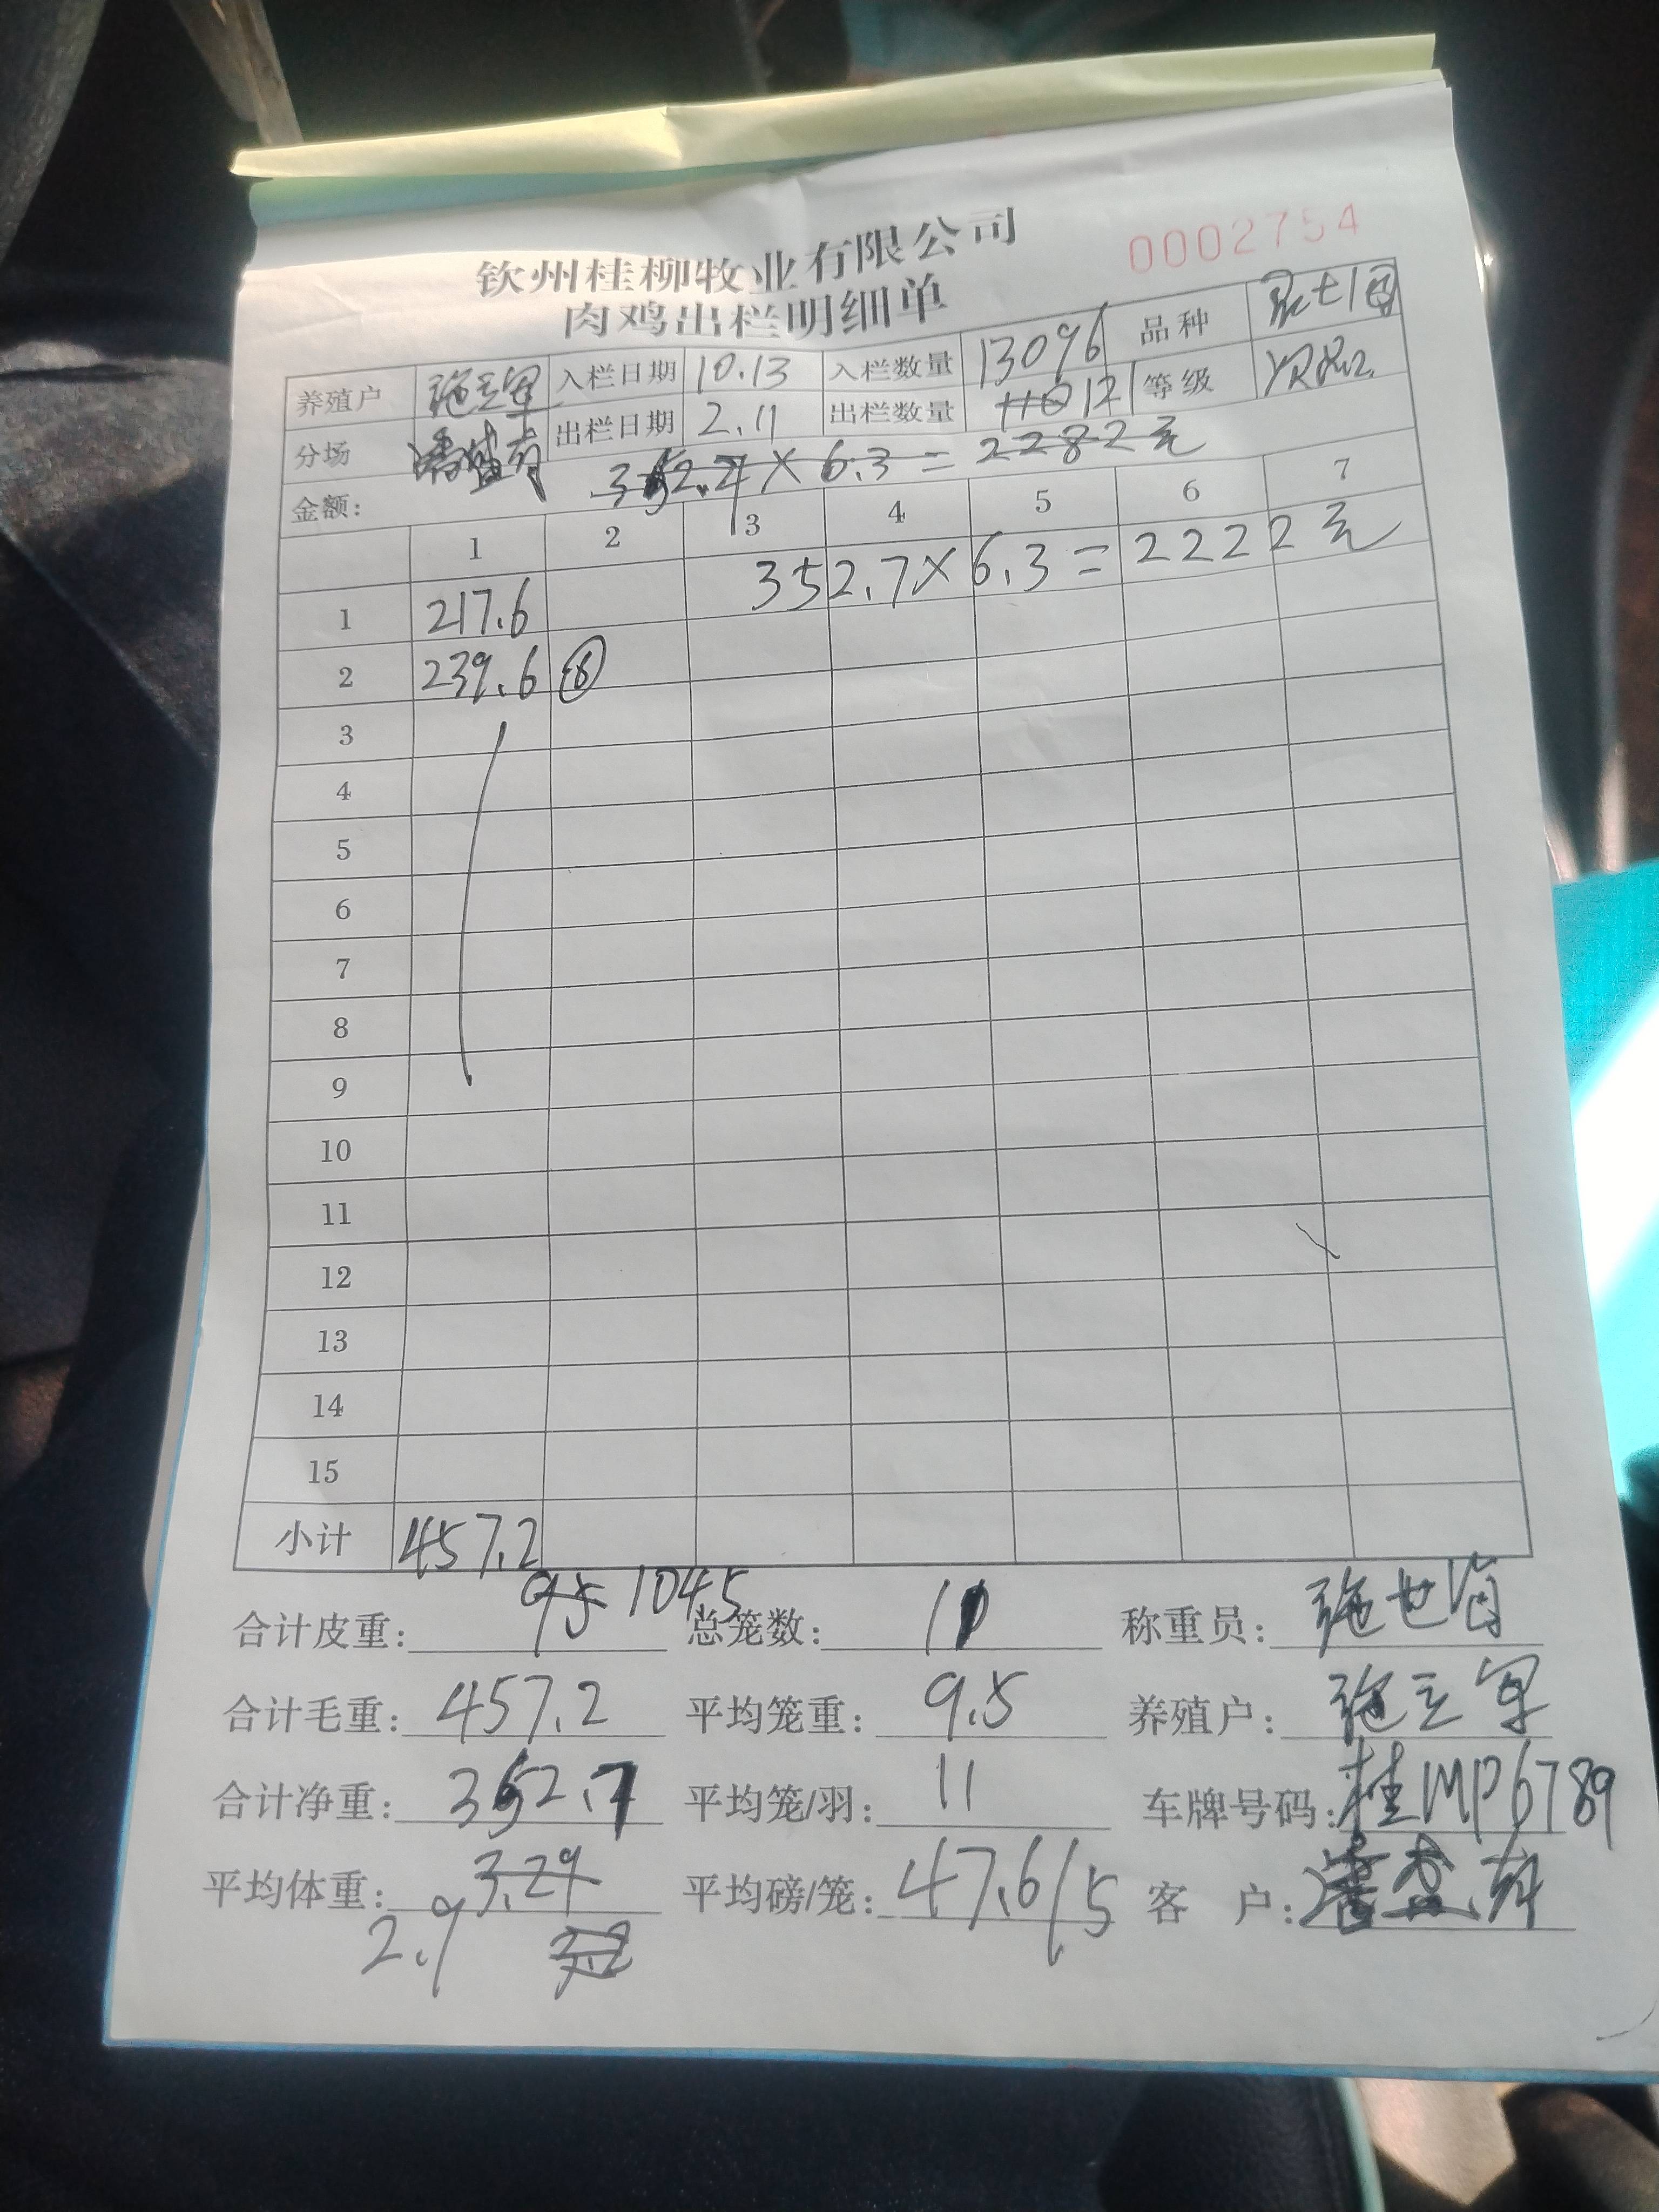 0002754
钦州桂柳牧业有限公司
肉鸡出栏明细单
养殖户 施立军 入栏日期 10.13 入栏数量 13096 品种
分场 出栏日期 2.11 出栏数量 121 等级
金额: 362.2 × 6.3 = 2282元
1 2 3 4 5 6 7
352.7 × 6.3 = 2222元
1 217.6
2 239.6 ⑥
3
4
5
6
7
8
9
10
11
12
13
14
15
小计 457.2
合计皮重: 95 104.5 总笼数: 11 称重员: 施世海
合计毛重: 457.2 平均笼重: 9.5 养殖户: 施立军
合计净重: 352.7 平均笼/羽: 11 车牌号码: 桂MP6789
平均体重: 3.29 平均磅/笼: 47.6/5 客 户:
2.9